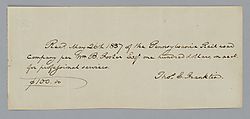 Recd. May 26th 1857 of the Pennsylvania Rail road
Company per Wm B. Foster Esqr one hundred dollars in part
for professional services.
$100.00
Thos. E. Franklin